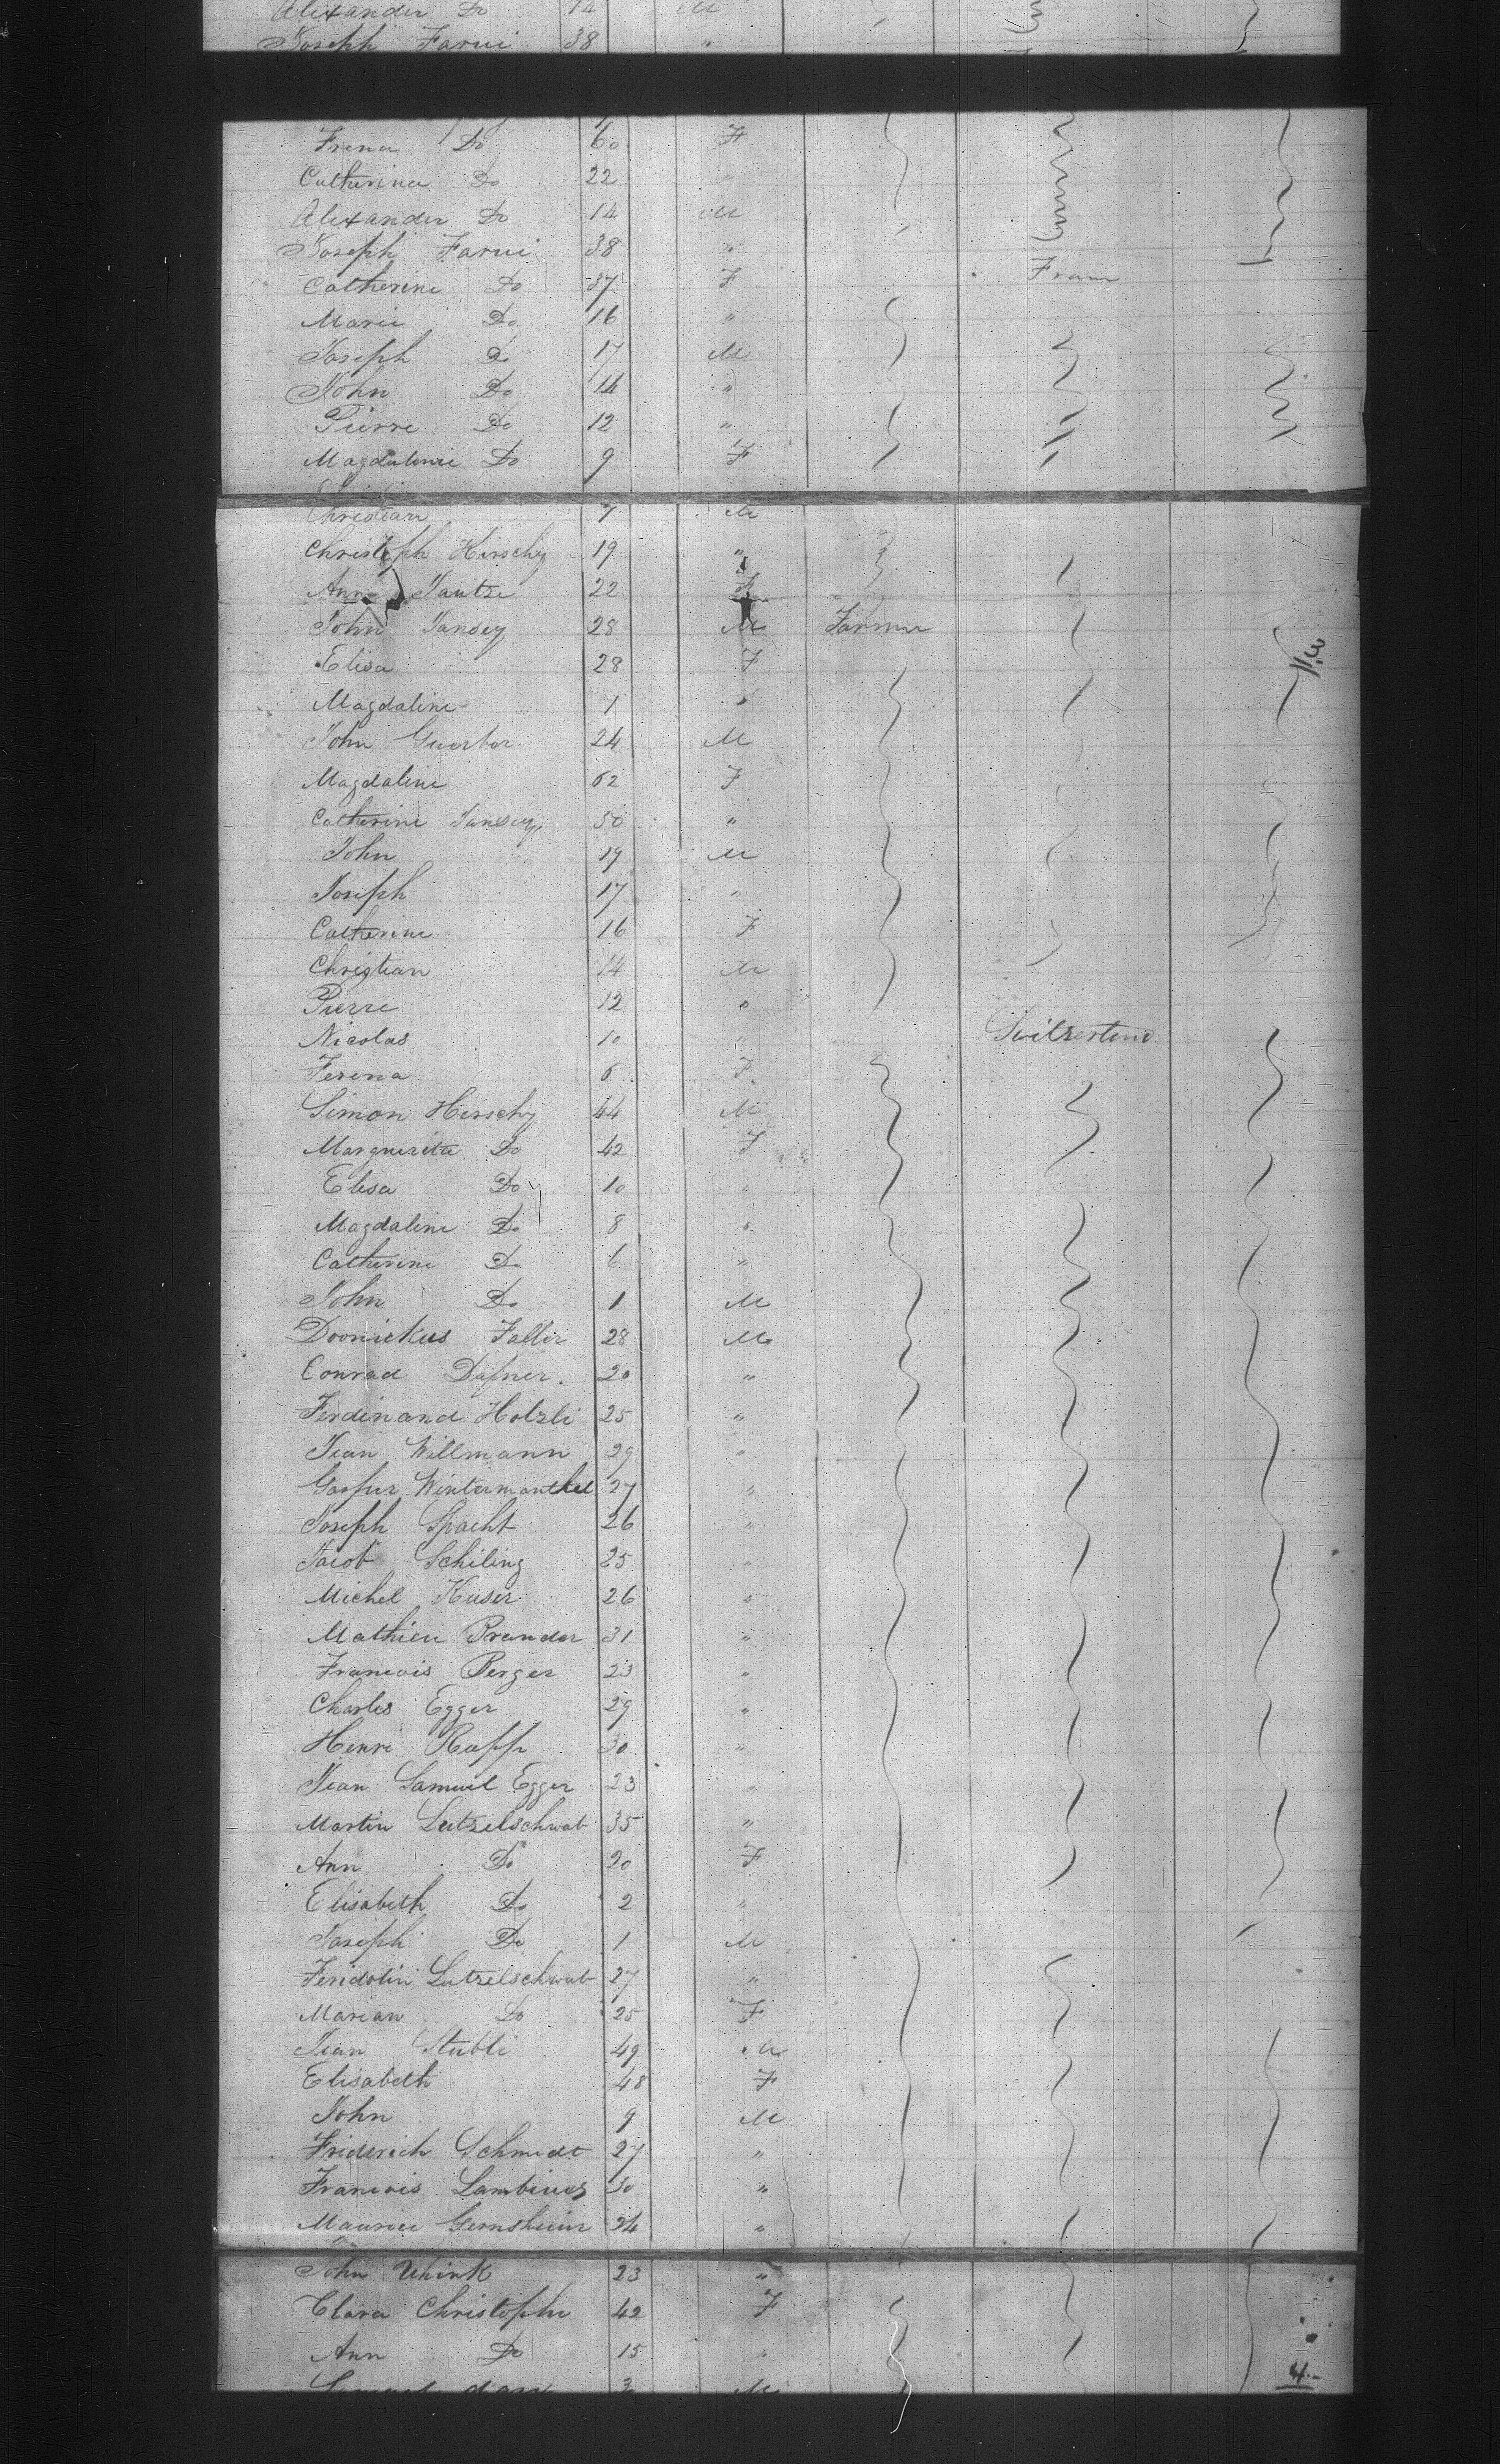 Alexander Do 14 M
Joseph Farni 38 "
Frena Do 60 F
Catherina Do 22 "
Alexander Do 14 M
Joseph Farni 38 "
Catherine Do 37 F Fran
Marie Do 16 "
Joseph Do 17 M
John Do 14 "
Pierre Do 12 "
Magdalenie Do 9 F
Christian 7 M
Christoph Hirschy 19 "
Ann Jautzi 22 F
John Jansey 28 M Farmer
Elisa 28 F
Magdaline 1 "
John Guerber 24 M
Magdaline 62 F
Catherine Jansey 50 "
John 19 M
Joseph 17 "
Catherine 16 F
Christian 14 M
Pierre 12 "
Nicolas 10 " Switzerland
Ferena 6 F
Simon Hirschy 44 M
Marguerita Do 42 F
Elisa Do 10 "
Magdaline Do 8 "
Catherine Do 6 "
John Do 1 M
Doonickus Faller 28 M
Conrad Dafner. 20 "
Ferdinand Holzli 25 "
Jean Willmann 29 "
Gaspur Wintermanthel 27 "
Joseph Spacht 26 "
Jacob Schiling 25 "
Michel Kuser 26 "
Mathieu Brander 31 "
Francois Berger 23 "
Charles Egger 29 "
Henri Rapp 30 "
Jean Samuel Egger 23 "
Martin Lutzelschwab 35 "
Ann Do 20 F
Elisabeth Do 2 "
Joseph Do 1 M
Feridolin Lutzelschwab 27 "
Marian Do 25 F
Jean Stubli 49 M
Elisabeth 48 F
John 9 M
Friderich Schmidt 27 "
Francois Lambinez 30 "
Maurice Gernsheim 24 "
John Uhink 23 "
Clara Christophe 42 F
Ann Do 15 "
Samuel 3 M
4.-